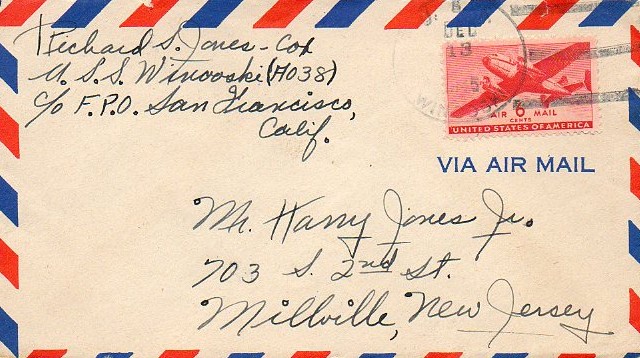 Richard S. Jones - Cox
U.S.S. Winooski (AO38)
c/o F.P.O. San Francisco,
Calif.
DEC
13
AIR 6 MAIL
CENTS
UNITED STATES OF AMERICA
VIA AIR MAIL
Mr. Harry Jones Jr.
703 S. 2nd St.
Millville, New Jersey